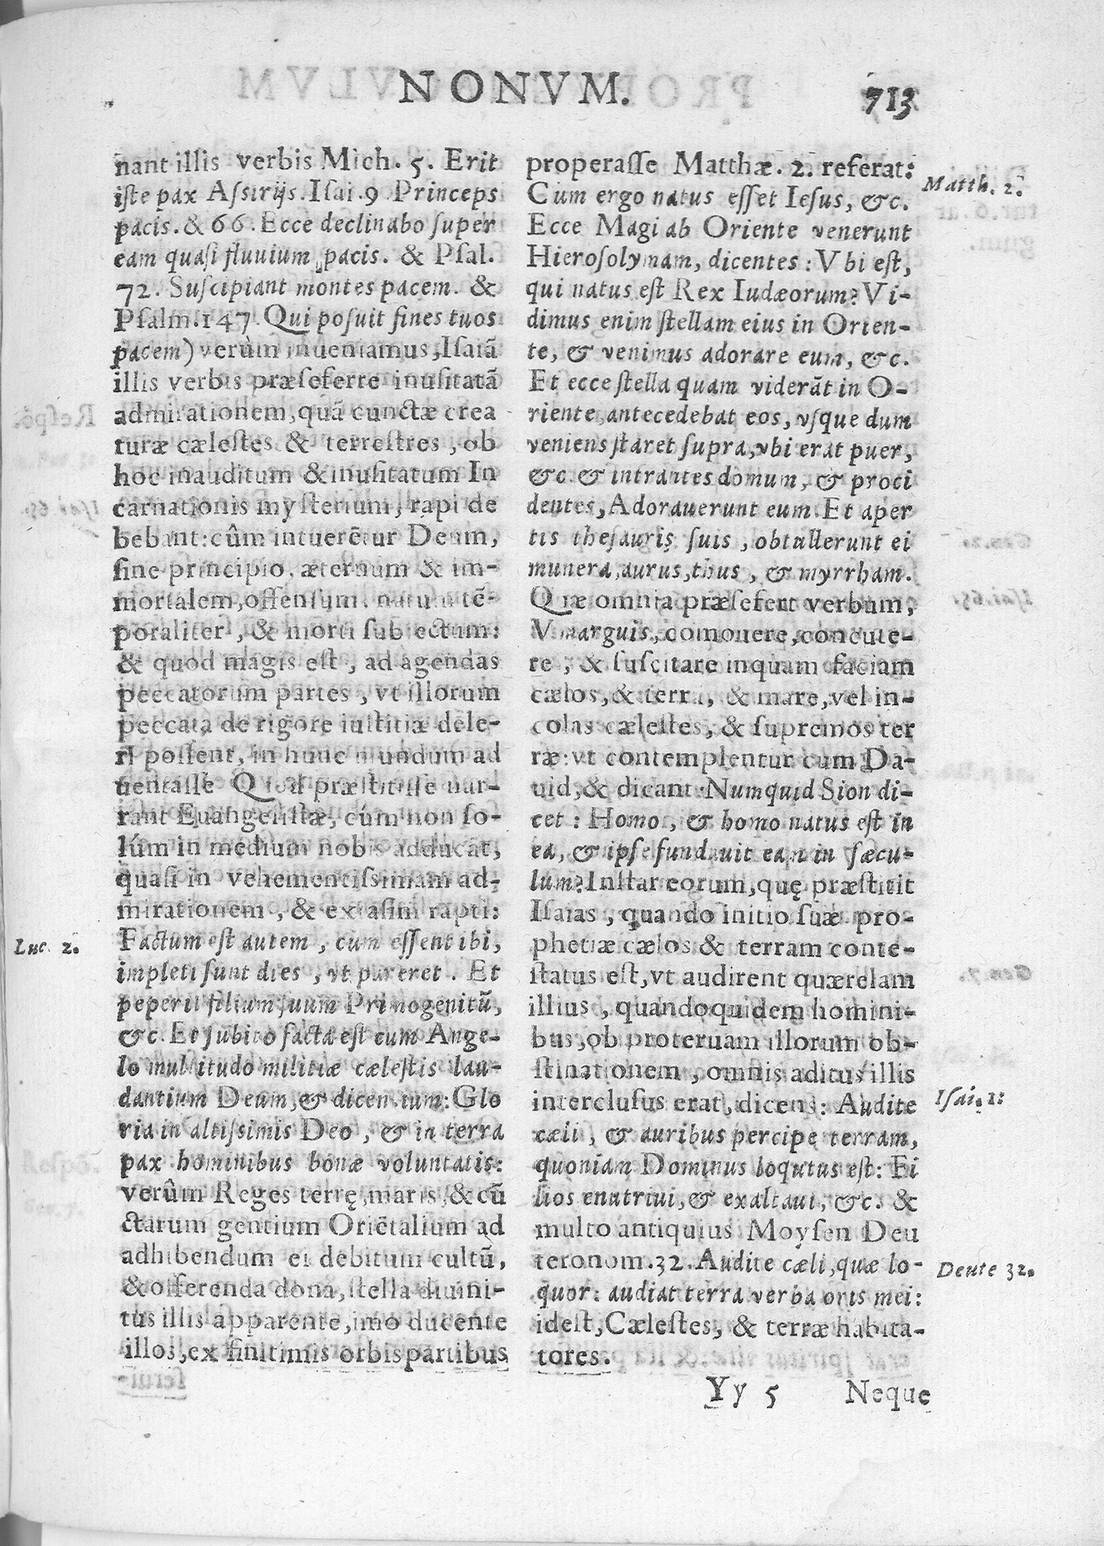 NONVM.
713
nant illis verbis Mich. 5. Erit
iſte pax Aſsirijs. Iſai. 9 Princeps
pacis. & 66. Ecce declinabo ſuper
eam quaſi fluuium pacis. & Pſal.
72. Suſcipiant montes pacem. &
Pſalm. 147. Qui poſuit fines tuos
pacem) verùm inueniamus, Iſaiā
illis verbis præſeferre inuſitatā
admirationem, quā cunctæ crea
turæ cæleſtes & terreſtres, ob
hoc inauditum & inuſitatum In
carnationis myſterium, rapi de
bebant: cûm intuerētur Deum,
ſine principio, æternum & im-
mortalem, offenſum, natum tē-
poraliter, & morti ſubiectum:
& quod magis eſt, ad agendas
peccatorum partes, vt illorum
peccata de rigore iuſtitiæ dele-
ri poſſent, in hunc mundum ad
uentaſſe Quod præſtitiſſe nar-
rant Euangeliſtæ, cúm non ſo-
lúm in medium nobis adducāt,
quaſi in vehementiſsimam ad-
mirationem, & extaſim rapti:
Factum eſt autem, cum eſſent ibi,
impleti ſunt dies, vt pareret. Et
peperit filium ſuum Primogenitū,
&c. Et ſubito facta eſt cum Ange-
lo multitudo militiæ cæleſtis lau-
dantium Deum, & dicentium: Glo
ria in altiſsimis Deo, & in terra
pax hominibus bonæ voluntatis:
verûm Reges terrę, maris, & cū
ctarum gentium Oriētalium ad
adhibendum ei debitum cultū,
& offerenda dona, ſtella diuini-
tus illis apparente, imò ducente
illos, ex finitimis orbis partibus
Luc. 2.
properaſſe Matthæ. 2. referat:
Cum ergo natus eſſet Ieſus, &c.
Ecce Magi ab Oriente venerunt
Hieroſolymam, dicentes: Vbi eſt,
qui natus eſt Rex Iudæorum? Vi-
dimus enim ſtellam eius in Orien-
te, & venimus adorare eum, &c.
Et ecce ſtella quam viderāt in O-
riente, antecedebat eos, vſque dum
veniens ſtaret ſupra, vbi erat puer,
&c. & intrantes domum, & proci
dentes, Adorauerunt eum. Et aper
tis theſauris ſuis, obtullerunt ei
munera, aurus, thus, & myrrham.
Quæ omnia præſefert verbum,
Vmarguis, comouere, concute-
re, & ſuſcitare inquam faciam
cælos, & terrā, & mare, vel in-
colas cæleſtes, & ſupremos ter
ræ: vt contemplentur cum Da-
uid, & dicant: Numquid Sion di-
cet: Homo, & homo natus eſt in
ea, & ipſe fundauit eam in ſæcu-
lum? Inſtar eorum, quę præſtitit
Iſaias, quando initio ſuæ pro-
phetiæ cælos & terram conte-
ſtatus eſt, vt audirent quærelam
illius, quandoquidem homini-
bus, ob proteruam illorum ob-
ſtinationem, omnis aditus illis
interclusus erat, dicens: Audite
cæli, & auribus percipe terram,
quoniam Dominus loqutus eſt: Fi
lios enutriui, & exaltaui, &c. &
multo antiquius Moyſen Deu
teronom. 32. Audite cæli, quæ lo-
quor: audiat terra verba oris mei:
ideſt, Cæleſtes, & terræ habita-
tores.
Matth. 2.
Iſai. 1:
Deute 32.
Yy 5 Neque